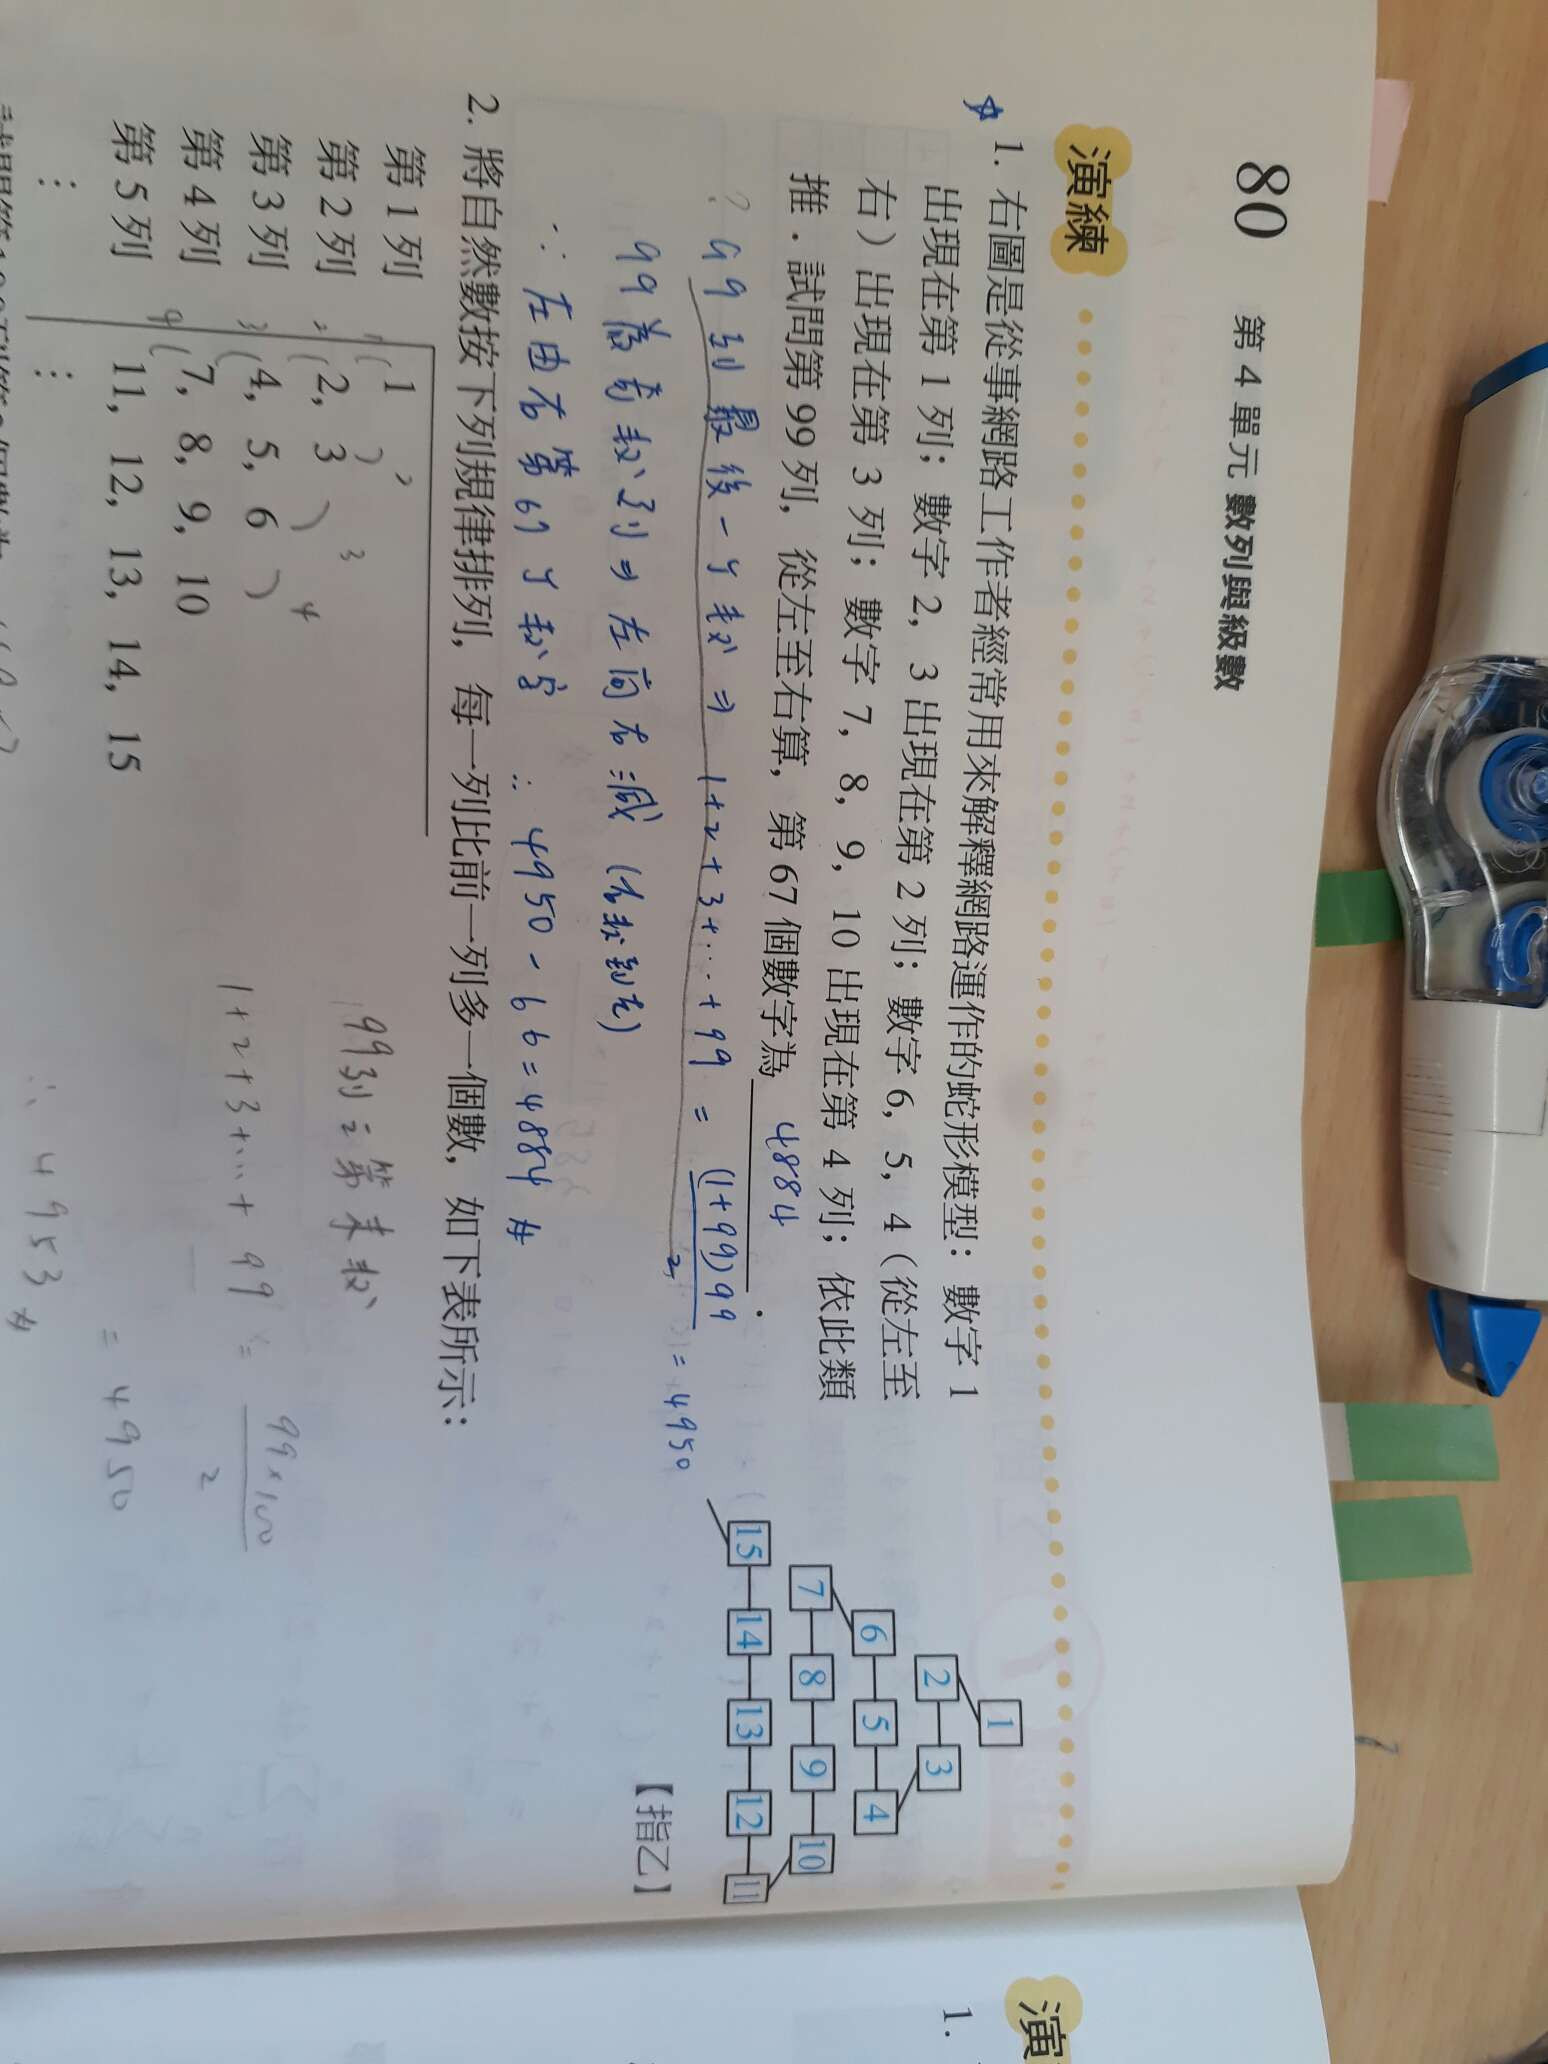 80 第 4 單元 數列與級數
演練
☆ 1. 右圖是從事網路工作者經常用來解釋網路運作的蛇形模型：數字 1
出現在第 1 列；數字 2，3 出現在第 2 列；數字 6，5，4（從左至
右）出現在第 3 列；數字 7，8，9，10 出現在第 4 列；依此類
推．試問第 99 列，從左至右算，第 67 個數字為 4884 ．
1
2 3
6 5 4
7 8 9 10
15 14 13 12 11
【指乙】
? 99列最後一个数 ⇒ 1+2+3+…+99 = (1+99)99/2 = 4950
99為奇数列 ⇒ 左向右減
∵ 左由右第67个数字 ∴ 4950 - 66 = 4884 #
2. 將自然數按下列規律排列，每一列比前一列多一個數，如下表所示：
第 1 列 1
第 2 列 2, 3
第 3 列 4, 5, 6
第 4 列 7, 8, 9, 10
第 5 列 11, 12, 13, 14, 15
⋮ ⋮
99列之第末数
1+2+3+…+99 = 99×100/2
= 4950
∴ 4953 #
演
1.